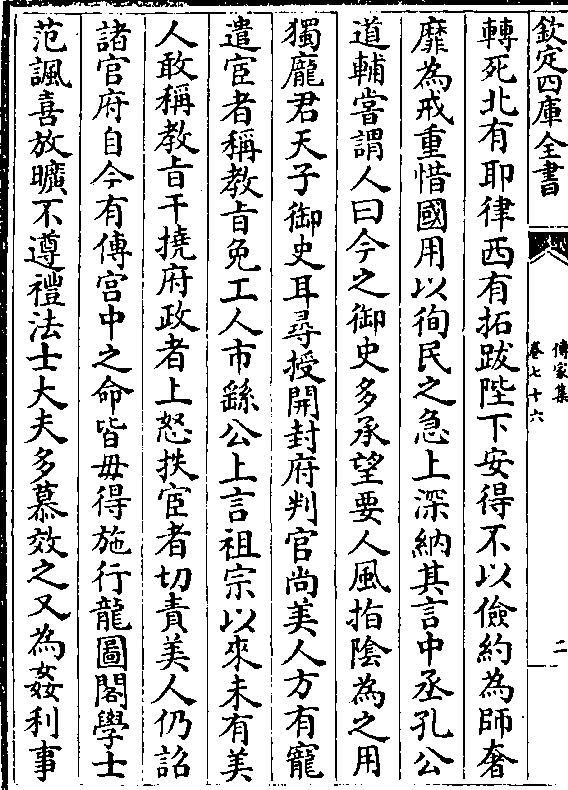 欽定四庫全書
傳家集
卷七十六
二
轉死北有耶律西有拓跋陛下安得不以儉約為師奢
靡為戒重惜國用以徇民之急上深納其言中丞孔公
道輔嘗謂人曰今之御史多承望要人風指陰為之用
獨龐君天子御史耳尋授開封府判官尚美人方有寵
遣宦者稱教旨免工人市繇公上言祖宗以來未有美
人敢稱教旨干撓府政者上怒扶宦者切責美人仍詔
諸官府自今有傳宮中之命皆毋得施行龍圖閣學士
范諷喜放曠不遵禮法士大夫多慕效之又為姦利事